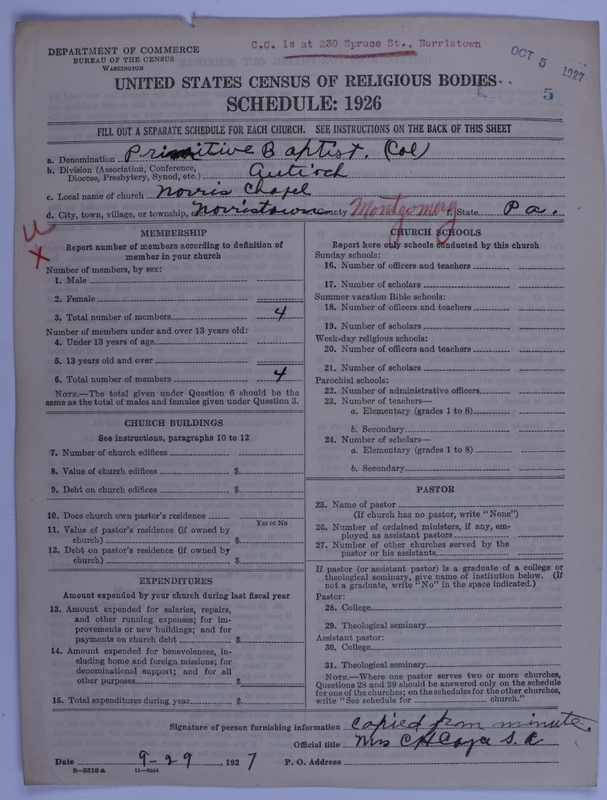 C.C. is at 230 Spruce St., Norristown
DEPARTMENT OF COMMERCE
BUREAU OF THE CENSUS
WASHINGTON
OCT 5 1927
5
UNITED STATES CENSUS OF RELIGIOUS BODIES
SCHEDULE: 1926
FILL OUT A SEPARATE SCHEDULE FOR EACH CHURCH. SEE INSTRUCTIONS ON THE BACK OF THIS SHEET
a. Denomination Primitive Baptist. (Col)
b. Division (Association, Conference, Diocese, Presbytery, Synod, etc.) Antioch
c. Local name of church Norris Chapel
d. City, town, village, or township, Norristown County Montgomery f. State Pa.
X
MEMBERSHIP
Report number of members according to definition of
member in your church
Number of members, by sex:
1. Male
2. Female
3. Total number of members 4
Number of members under and over 13 years old:
4. Under 13 years of age
5. 13 years old and over
6. Total number of members 4
NOTE.—The total given under Question 6 should be the
same as the total of males and females given under Question 3.
CHURCH BUILDINGS
See instructions, paragraphs 10 to 12
7. Number of church edifices
8. Value of church edifices $
9. Debt on church edifices $
10. Does church own pastor's residence
Yes or No
11. Value of pastor's residence (if owned by
church) $
12. Debt on pastor's residence (if owned by
church) $
EXPENDITURES
Amount expended by your church during last fiscal year
13. Amount expended for salaries, repairs,
and other running expenses; for im-
provements or new buildings; and for
payments on church debt $
14. Amount expended for benevolences, in-
cluding home and foreign missions; for
denominational support; and for all
other purposes $
15. Total expenditures during year $
CHURCH SCHOOLS
Report here only schools conducted by this church
Sunday schools:
16. Number of officers and teachers
17. Number of scholars
Summer vacation Bible schools:
18. Number of officers and teachers
19. Number of scholars
Week-day religious schools:
20. Number of officers and teachers
21. Number of scholars
Parochial schools:
22. Number of administrative officers
23. Number of teachers—
a. Elementary (grades 1 to 8)
b. Secondary
24. Number of scholars—
a. Elementary (grades 1 to 8)
b. Secondary
PASTOR
25. Name of pastor
(If church has no pastor, write "None")
26. Number of ordained ministers, if any, em-
ployed as assistant pastors
27. Number of other churches served by the
pastor or his assistants
If pastor (or assistant pastor) is a graduate of a college or
theological seminary, give name of institution below. (If
not a graduate, write "No" in the space indicated.)
Pastor:
28. College
29. Theological seminary
Assistant pastor:
30. College
31. Theological seminary
NOTE.—Where one pastor serves two or more churches,
Questions 28 and 29 should be answered only on the schedule
for one of the churches; on the schedules for the other churches,
write "See schedule for church."
Signature of person furnishing information copied from minute.
Official title Mrs C H S. A
Date 9-29, 1927 P. O. Address
8-5518a 11-9064